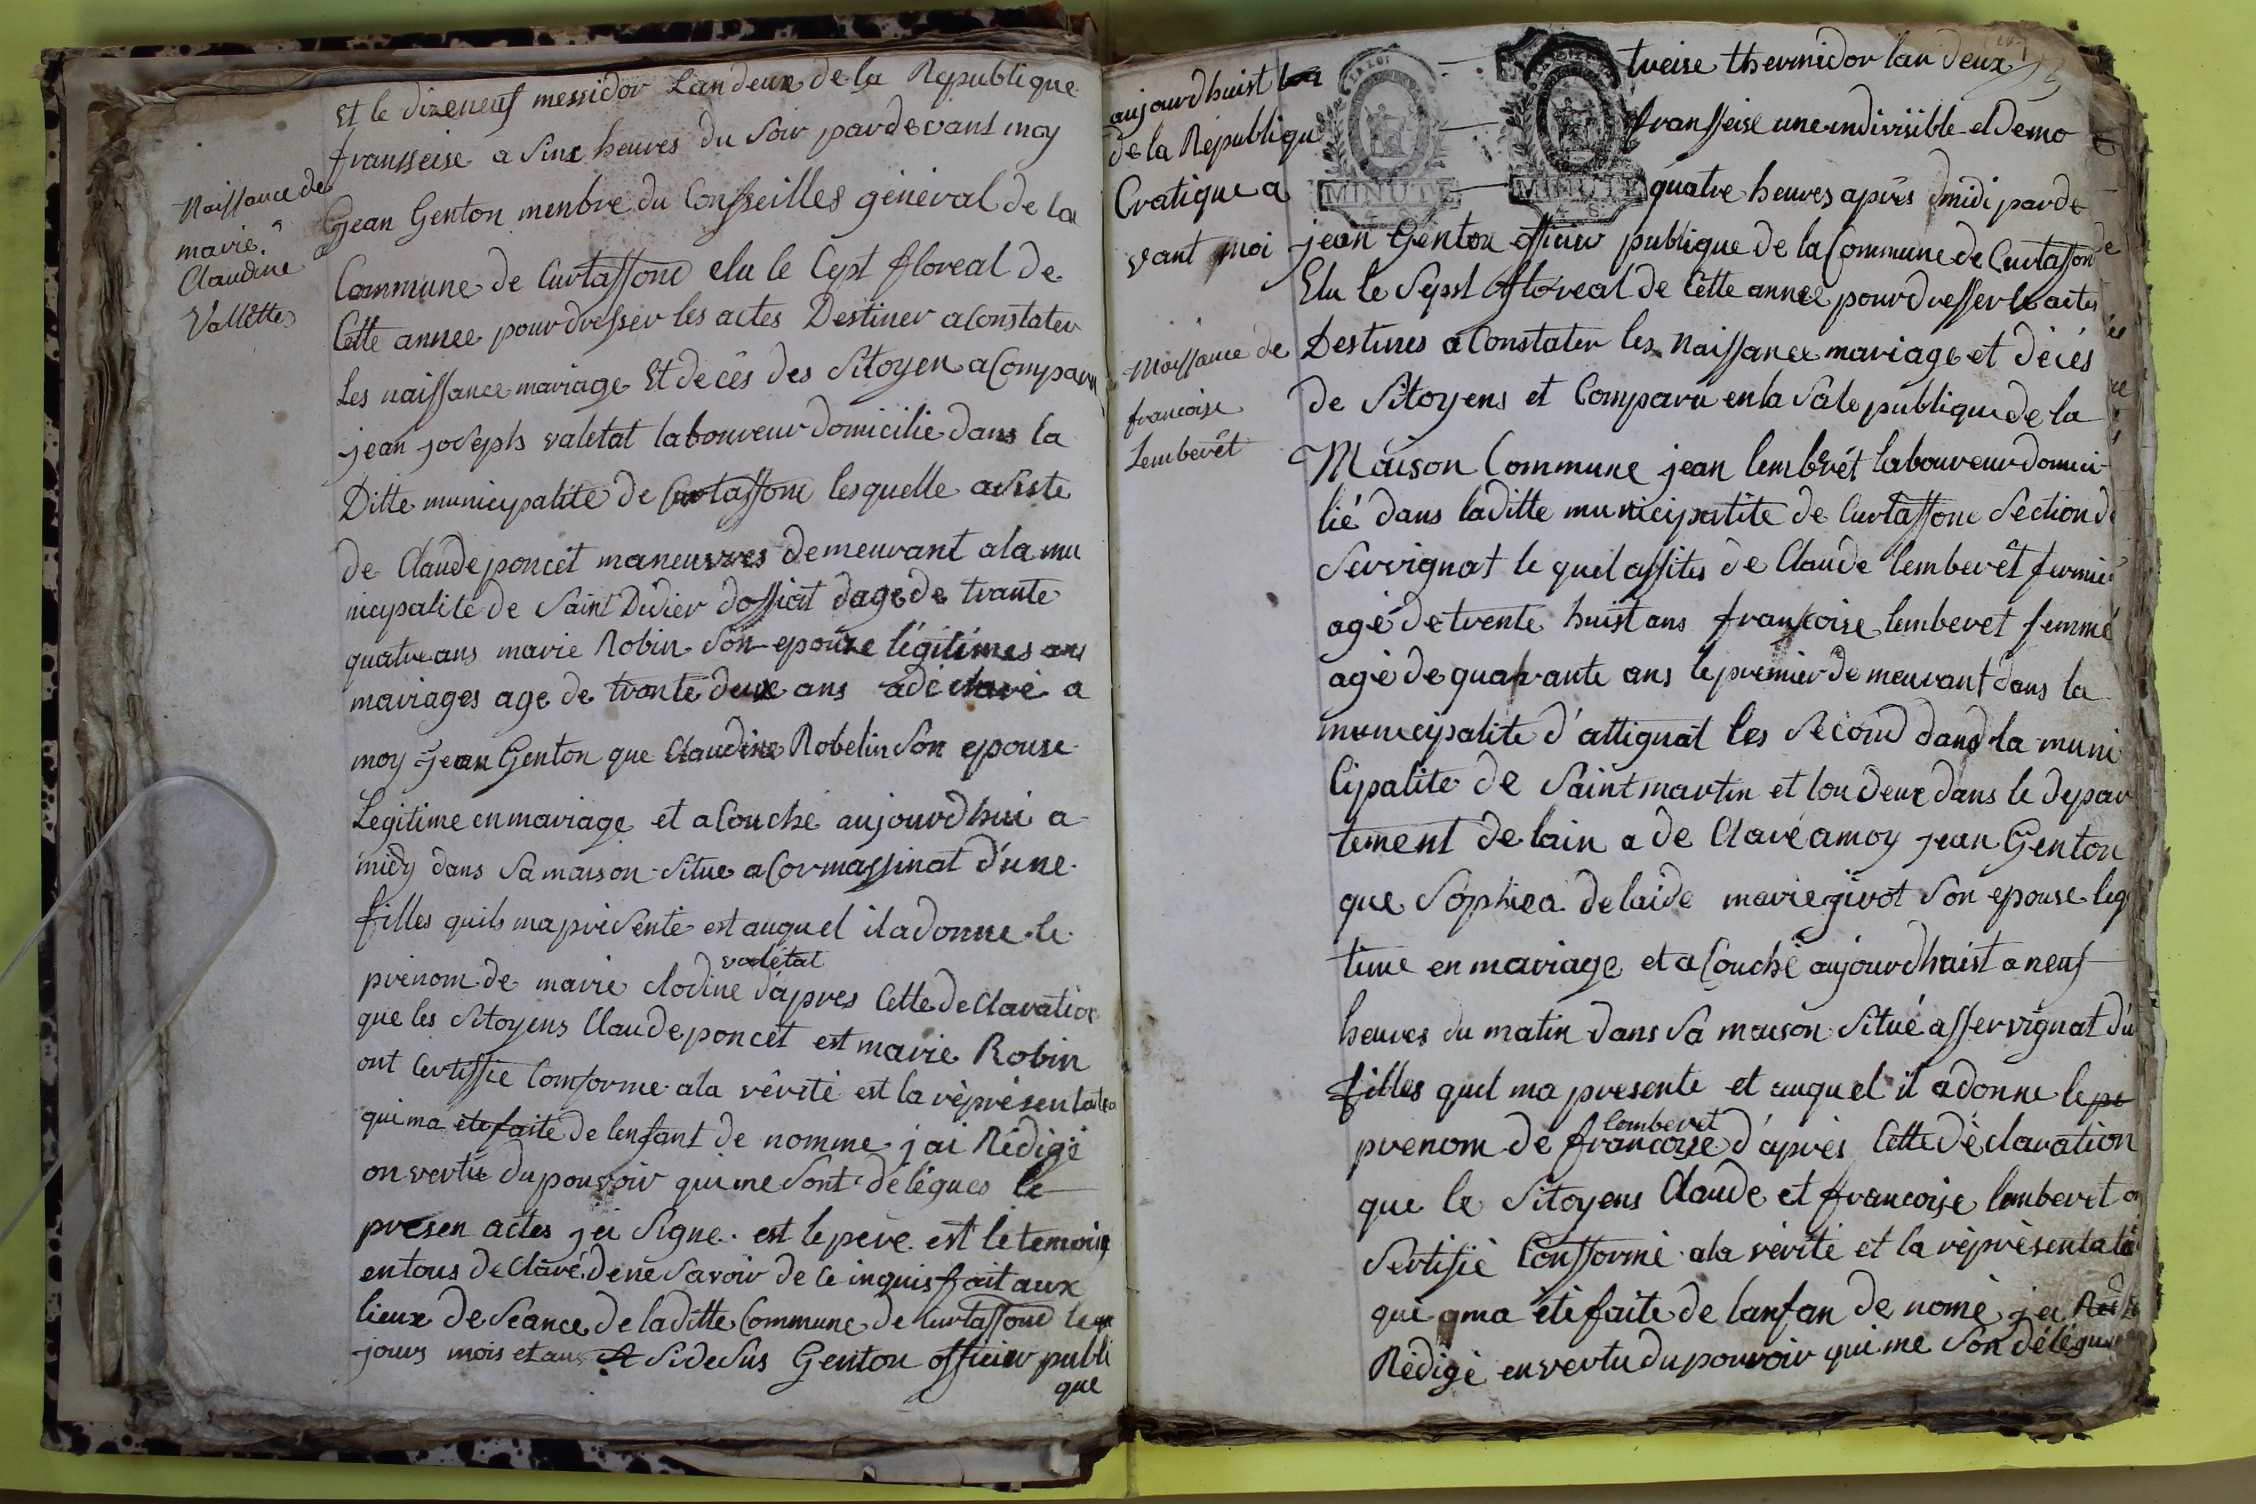 Et le dizeneuf messidor Lan deux de la Republique
fransseise a sinc heures du soir pardevant moy
Naissance de
marie
Claudine
Vallettes
Gjean Genton menbre du Consseilles géneral de la
Commune de Curtassond elu le Cept floreal de
Cette annee pour dresser les actes Destiner a Constater
Les naissance mariage Et decês des Sitoyen a Comparu
jean joseph valetat laboureur domicilie dans la
Ditte municipalité de Curtassone lesquelle asiste
de Claude poncet maneuvres demeurant a la mu
nicypalite de Saint Didier dossiat dage de trante
quatre ans marie Robin son epouze légitimes ans
mariages age de trante deux ans a declaré a
moy jean Genton que Claudine Robelin Son epouse
Legitime en mariage et a Couche aujourdhui a
midy dans sa maison situe a Cormassinat d'une
filles quils ma présenté est auquel il a donne le
valétat
prénom de marie clodine d'apres Cette declaration
que les sitoyens Claude poncet est marie Robin
ont Certiffie Comforme a la vérité est la réprésentatio
qui ma ete faite de lenfant de nomme jai Rédigé
on vertu du pouvoir qui me sont délégues le
presen actes jei signe est le pere est le temoing
en tous declaré de ne savoir de ce inquis fait aux
lieux de seance de la ditte Commune de Curtassond le
jours mois et ans si desus Genton officier publi
que
aujourdhuist treise thermidor lan deux
de la Republique fransseise une indivisible et demo
Cratique a quatre heures après dmidi parde
LA LOI
MINUTE
MINUTE
vant moi jean Genton officier publique de la Commune de Curtasson
Elu le Sepst floreal de Cette annee pour dresser le actes
Naissance de
francoise
Lemberêt
Destines a Constater les Naissance mariage et décés
de Sitoyens et Comparu en la sale publique de la
Maison Commune jean lemberét laboureur domici
lié dans la ditte municipatite de Curtassone Section de
Servignat le quel assites de Claude lemberêt fermie
agé de trente huist ans francoise lemberet femme
agé de quarante ans le premier demeurant dans la
municypalite d'attignat les second dans la muni
Cipalite de Saint martin et lou deux dans le depar
tement de lain a de Claré a moy jean Genton
que Sophiea delaide marie givot son epouse legi
time en mariage et a Couché aujourdhuist a neuf
heures du matin dans sa maison situé asservignat du
filles quil ma presente et auquel il a donne le pe
lemberet
prenom de francoise d'après Cette déclaration
que le Sitoyens Claude et francoise lemberet on
Sertifié Confforme a la vérité et la réprésentatio
qui ma été faite de lanfan de nomé jei Red
Rédigé en vertu du pouvoir qui me son délégue